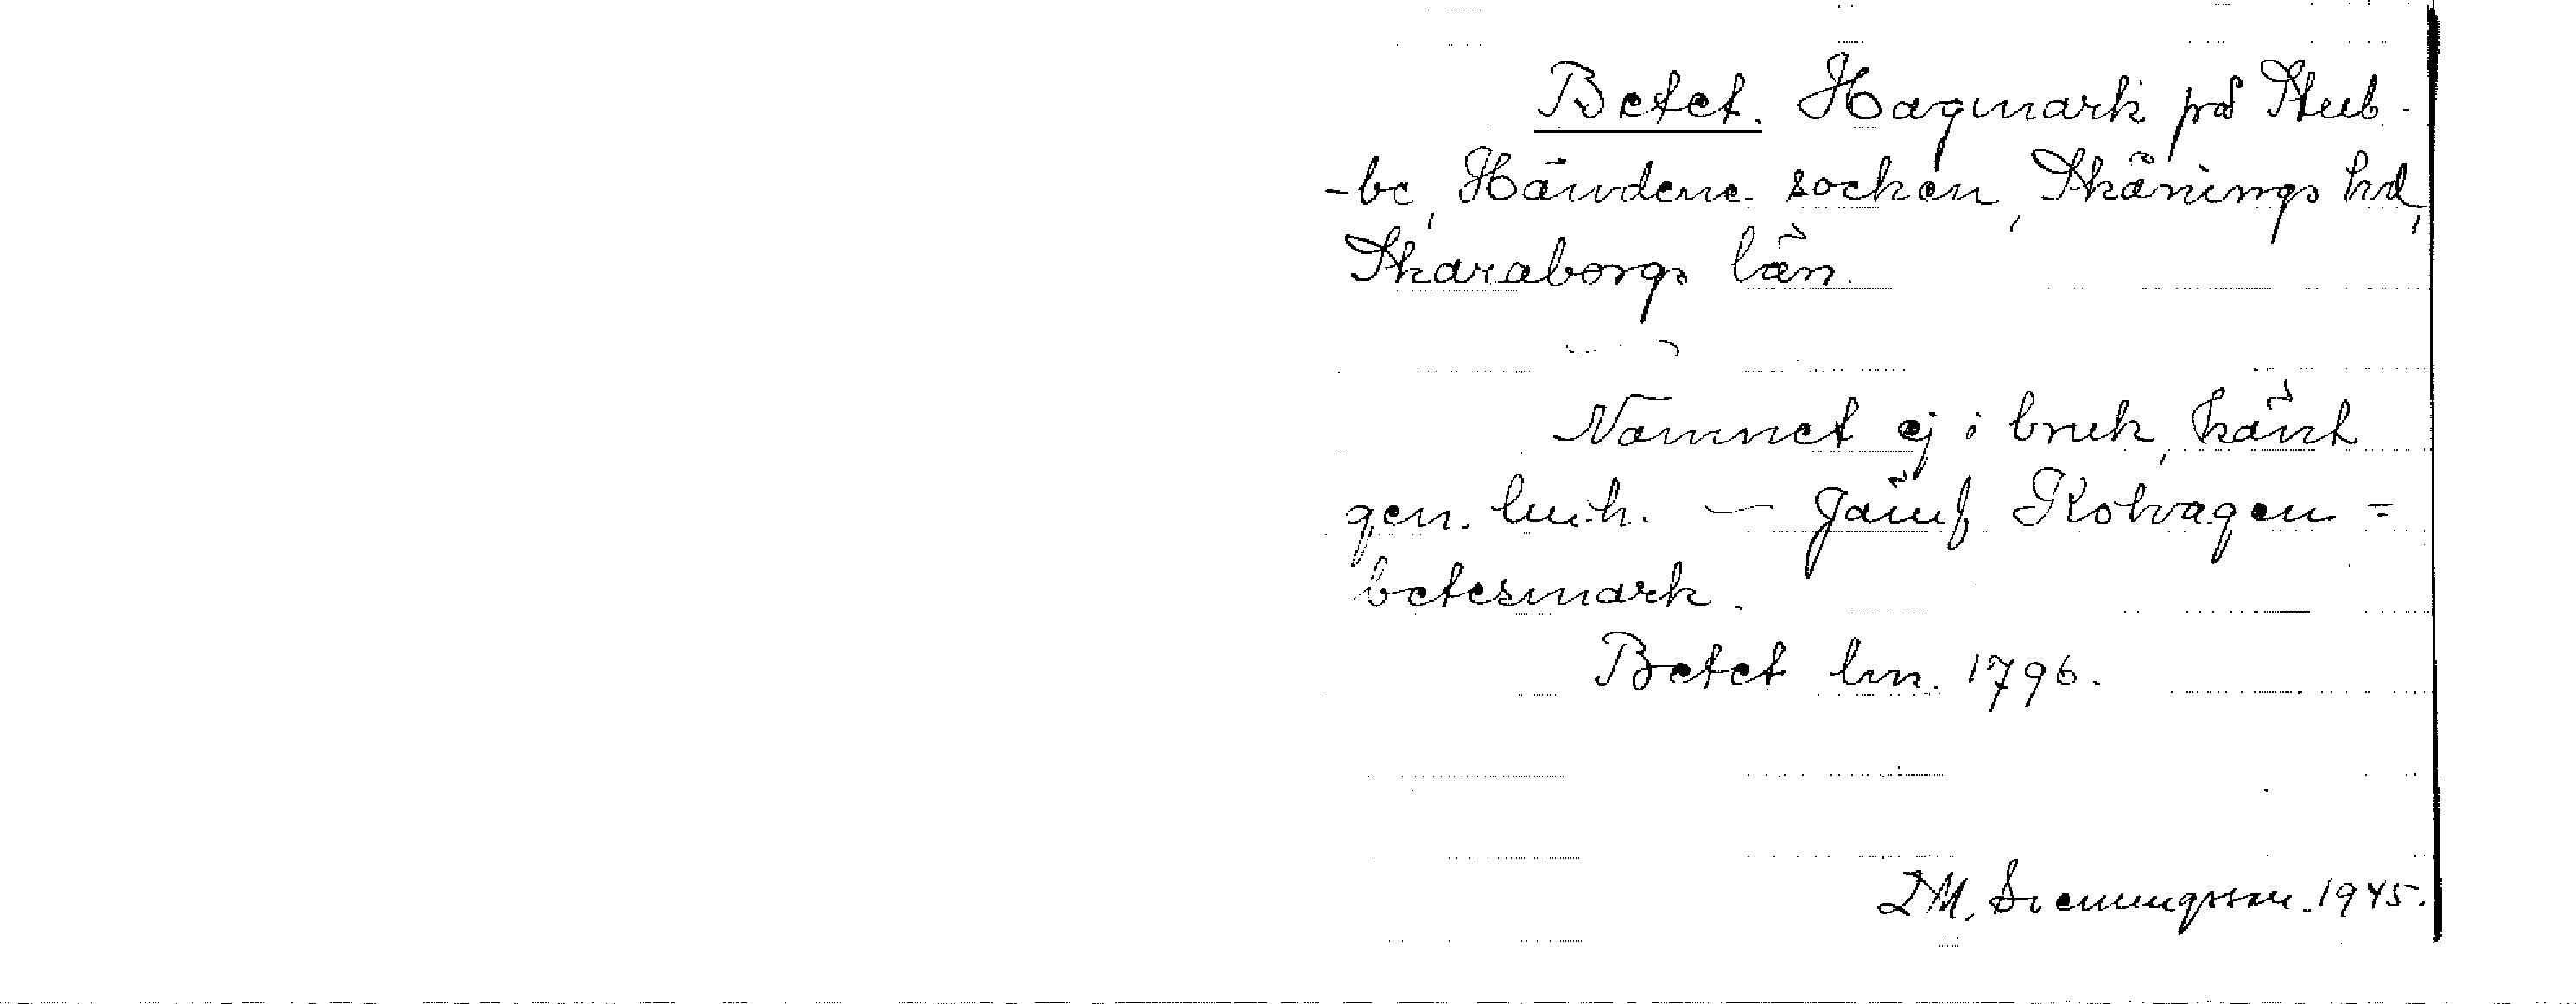 Betet. Hagmark på Stub-
-be, Händene socken, Skånings hd,
Skaraborgs län.
Namnet ej i bruk, känt
gen. lm.h. — Jämf Kolvagen =
betesmark.
Betet lm. 1796.
D M. Svenungsson. 1945.